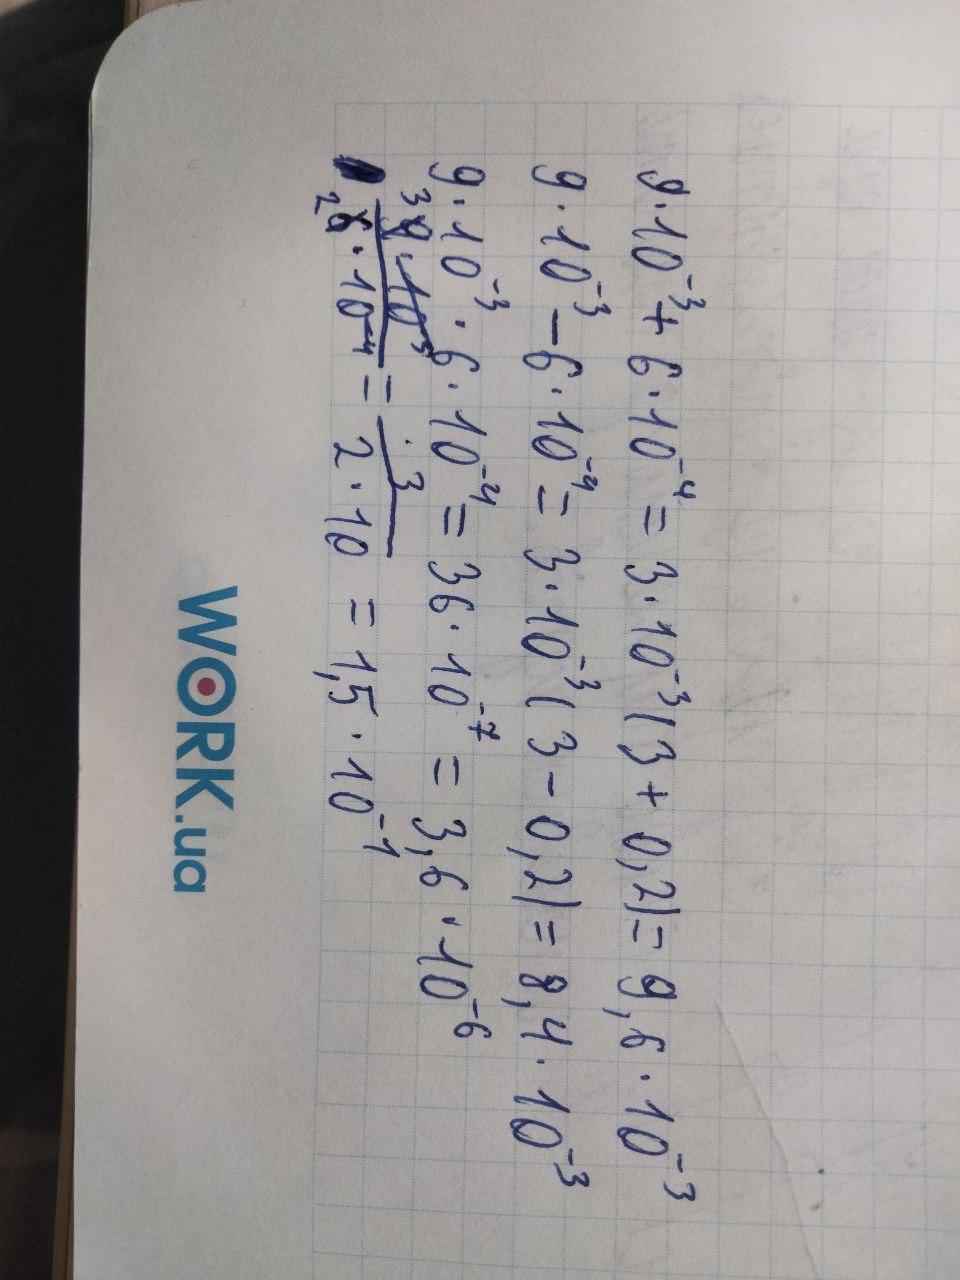 9·10⁻³ + 6·10⁻⁴ = 3·10⁻³(3 + 0,2) = 9,6·10⁻³
9·10⁻³ − 6·10⁻⁴ = 3·10⁻³(3 − 0,2) = 8,4·10⁻³
9·10⁻³ · 6·10⁻⁴ = 36·10⁻⁷ = 3,6·10⁻⁶
3 9·10⁻³ = 3
2 6·10⁻⁴ = 2·10 = 1,5·10⁻¹
WORK.ua